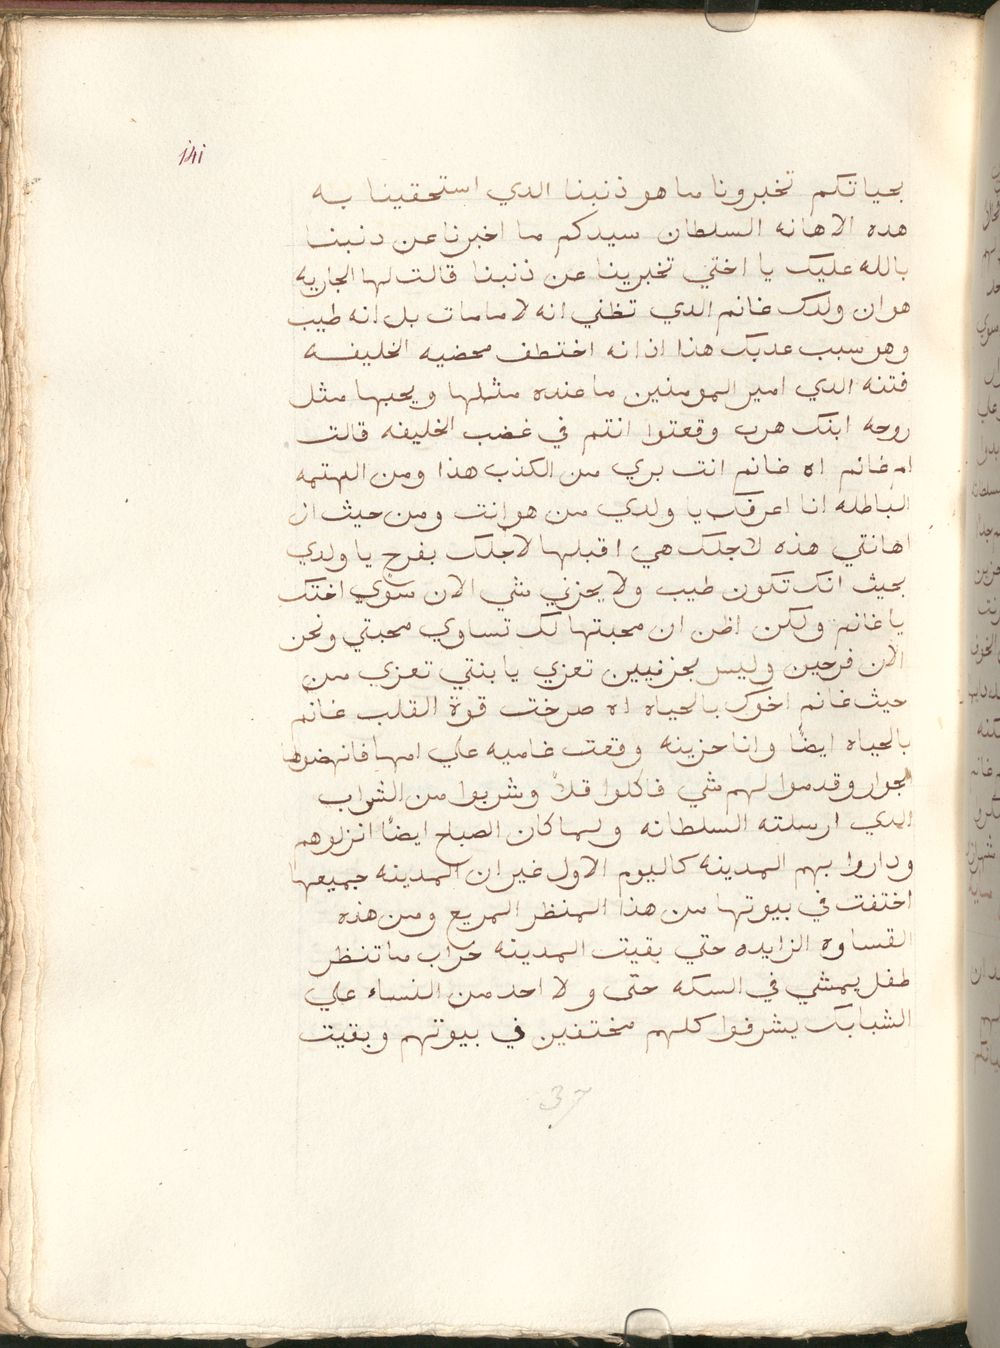 141
بحياتكم تخبرونا ما هو ذنبنا الدي استحقينا به
هده الاهانه السلطان سيدكم ما اخبرنا عن دنبنا
بالله عليك يا اختي تخبرينا عن ذنبنا قالت لها الجاريه
هو ان ولدك غانم الدي تظني انه لا مامات بل انه طيب
وهو سبب عدبك هذا اذ انه اختطف محضيه الخليفه
فتنه الدي امير المومنين ما عنده مثلها ويحبها مثل
روحه ابنك هرب وقعتوا انتم في غضب الخليفه قالت
ام غانم اه غانم انت بري من الكذب هذا ومن التهمه
الباطله انا اعرفك يا ولدي من هو انت ومن حيث ان
اهانتي هذه لاجلك هي اقبلها لاجلك بفرح يا ولدي
بحيث انك تكون طيب ولا يحزني شي الان سوي اختك
يا غانم ولكن اظن ان محبتها لك تساوي محبتي ونحن
الان فرحين وليس بحزنيين تعزي يا بنتي تعزي من
حيث غانم اخوك بالحياه اه صرخت قوة القلب غانم
بالحياه ايضًا وانا حزينه وقعت غاميه علي امها فانهضوها
الجوار وقدموا لهم شي فاكلوا قلاً وشربوا من الشراب
الدي ارسلته السلطانه ولما كان الصبلح ايضًا انزلوهم
وداروا بهم المدينه كاليوم الاول غير ان المدينه جميعها
اختفت في بيوتها من هذا المنظر المريع ومن هذه
القساوه الزايده حتي بقيت المدينه خراب ما تنظر
طفل يمشي في السكه حتى ولا احد من النساء علي
الشبابك يشرفوا كلهم مختفين في بيوتهم وبقيت
37